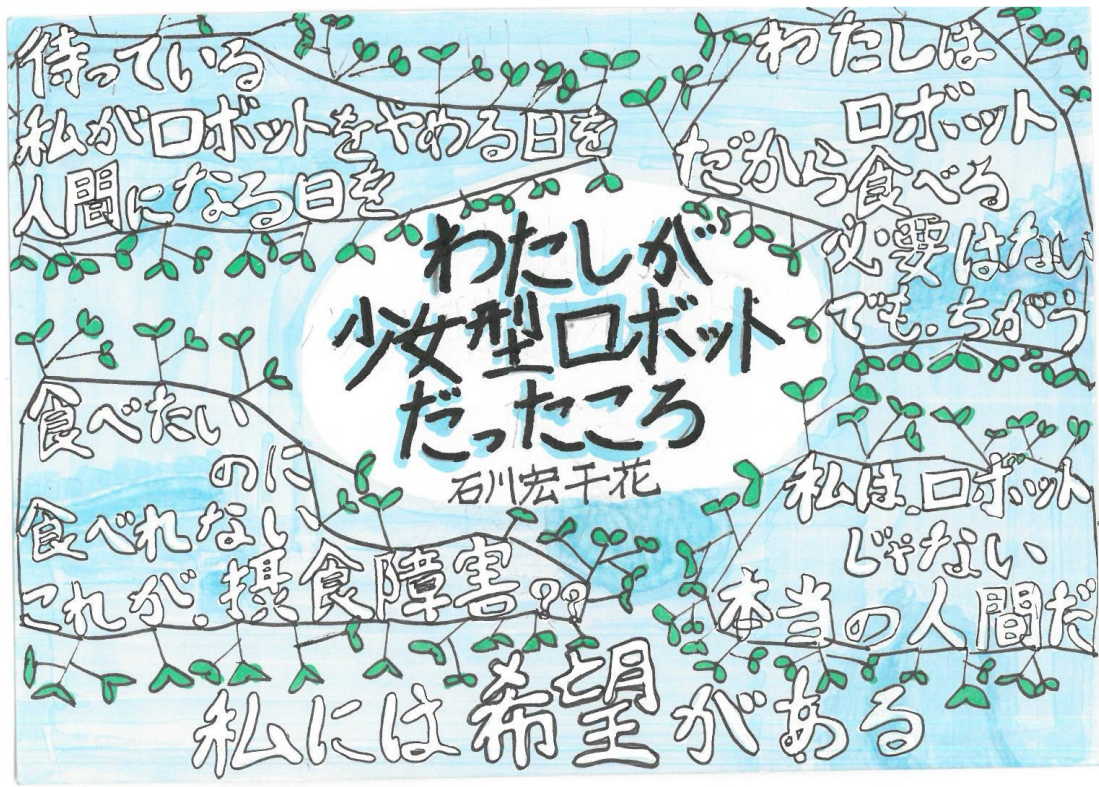 待っている
私がロボットをやめる日を
人間になる日を
わたしは
ロボット
だから食べる
必要はない
でも、ちがう
わたしが
少女型ロボット
だったころ
石川宏千花
食べたい
のに
食べれない
これが、摂食障害??
私は、ロボット
じゃない
本当の人間だ
私には希望がある